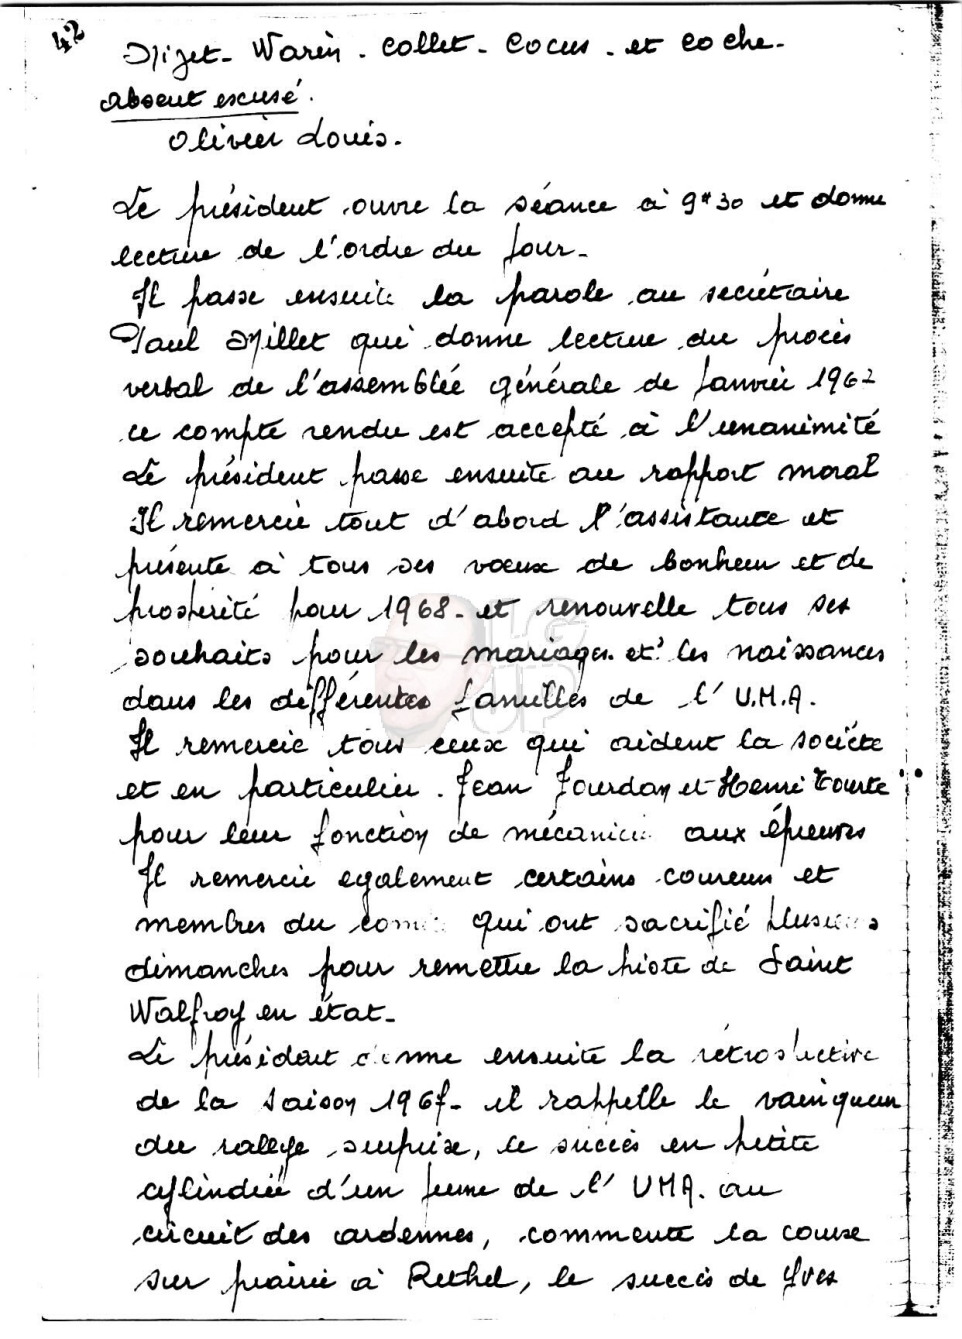 42
Millet - Warin - Collet - Cocus - et Coche -
absent excusé.
Olivier Louis.
Le président ouvre la séance à 9H30 et donne
lecture de l'ordre du jour -
Il passe ensuite la parole au secrétaire
Paul Millet qui donne lecture du procès
verbal de l'assemblée générale de Janvier 1967
ce compte rendu est accepté à l'unanimité
Le président passe ensuite au rapport moral
Il remercie tout d'abord l'assistance et
présente à tous ses voeux de bonheur et de
prospérité pour 1968 - et renouvelle tous ses
souhaits pour les mariages et les naissances
dans les différentes familles de l'U.M.A.
Il remercie tous ceux qui aident la société
et en particulier . Jean Jourdan et Henri Tourte
pour leur fonction de mécanicien aux épreuves
Il remercie egalement certains coureurs et
membres du comité qui ont sacrifié plusieurs
dimanches pour remettre la piste de Saint
Walfroy en état -
Le président donne ensuite la rétrospective
de la saison 1967 - il rappelle le vainqueur
du rallye surprise, le succès en petite
cylindrée d'un jeune de l'UMA. au
circuit des ardennes, commente la course
sur prairie à Rethel, le succès de Yves
LG2
UP